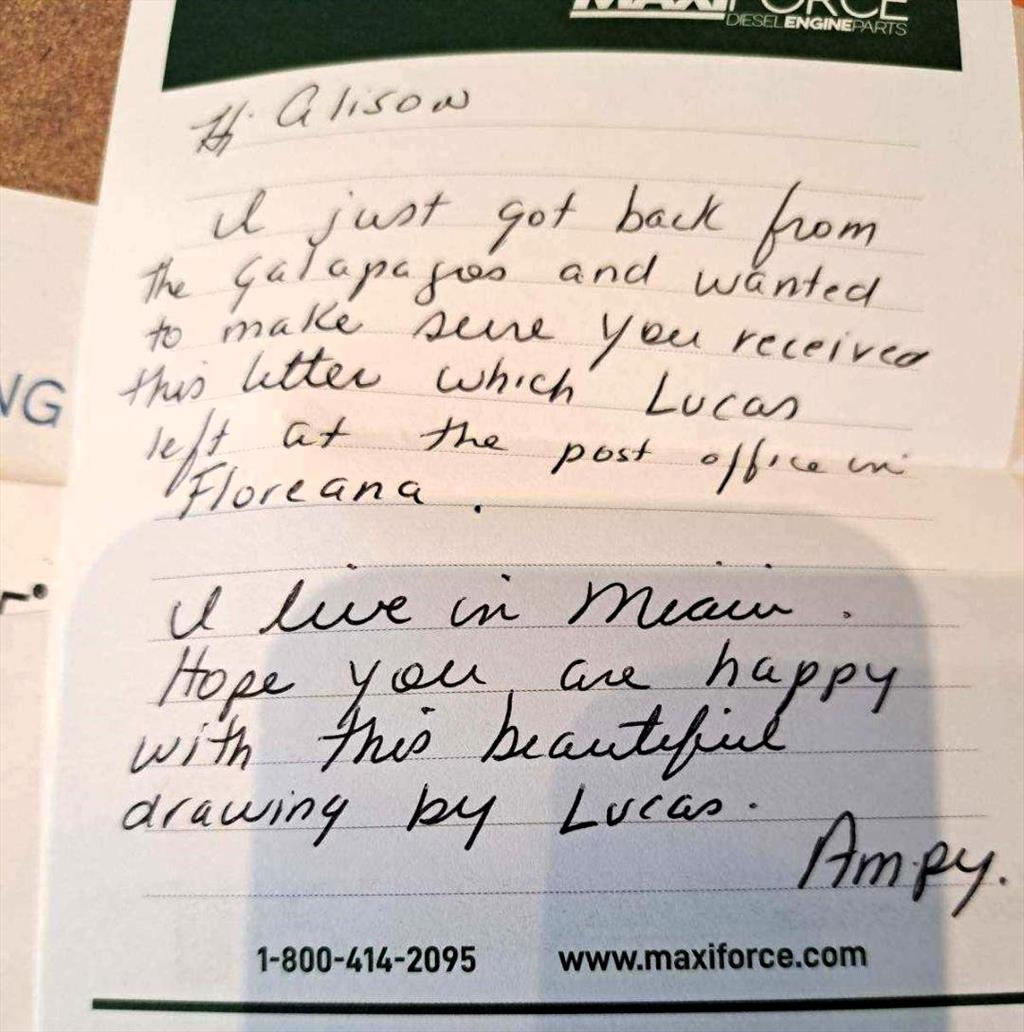 MAXIFORCE
DIESEL ENGINE PARTS
Hi Alison
I just got back from
the Galapagos and wanted
to make sure you received
this letter which Lucas
left at the post office in
Floreana.
I live in Miami.
Hope you are happy
with this beautiful
drawing by Lucas.
Ampy.
1-800-414-2095 www.maxiforce.com
NG